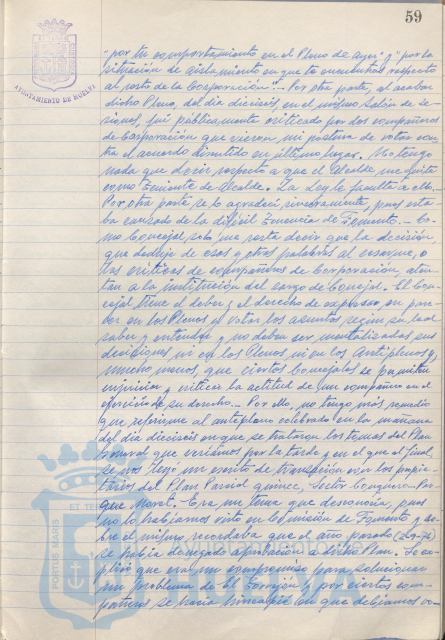 59
AYUNTAMIENTO DE HUELVA
"por tu comportamiento en el Pleno de ayer" y "por la
situación de aislamiento en que te encuentras respecto
al resto de la Corporación".- Por otra parte, al acabar
dicho Pleno, del día dieciseis, en el mismo Salón de Se-
siones, fui públicamente criticado por dos compañeros
de Corporación que vieron mi postura de votar con-
tra el acuerdo discutido en último lugar. No tengo
nada que decir respecto a que el Alcalde me quite
como Teniente de Alcalde. La Ley le faculta a ello.
Por otra parte se lo agradecí sinceramente, pues esta-
ba cansado de la difícil Tenencia de Fomento.- Co-
mo Concejal, solo me resta decir que la decisión
que deduje de esas y otras palabras al cesarme, o
las críticas de compañeros de Corporación, aten-
tan a la institución del cargo de Concejal. El Con-
cejal tiene el deber y el derecho de expresar su pare-
cer en los Plenos y votar los asuntos, según su leal
saber y entender y no deben ser mentalizadas sus
decisiones ni en los Plenos, ni en los Antiplenos y
mucho menos, que ciertos concejales se permitan
enjuiciar y criticar la actitud de un compañero en el
ejercicio de su derecho.- Por ello, no tengo más remedio
que referirme al antepleno celebrado en la mañana
del día dieciseis en que se trataron los temas del Plan
General que veríamos por la tarde y en el que al final,
se nos leyó un escrito de transacción con los propie-
tarios del Plan Parcial quince, Sector Conquero-Par-
que Moret.- Era un tema que desconocía, pues
no lo habíamos visto en Comisión de Fomento y so-
bre el mismo recordaba que el año pasado
se había denegado aprobación a dicho Plan. Se ex-
plicó que era un compromiso para solucionar
un problema de El Torrejón y por ciertos com-
pañeros se hacía hincapié en que debíamos vo-
PORTUS MARIS
ET TE
HUELVA